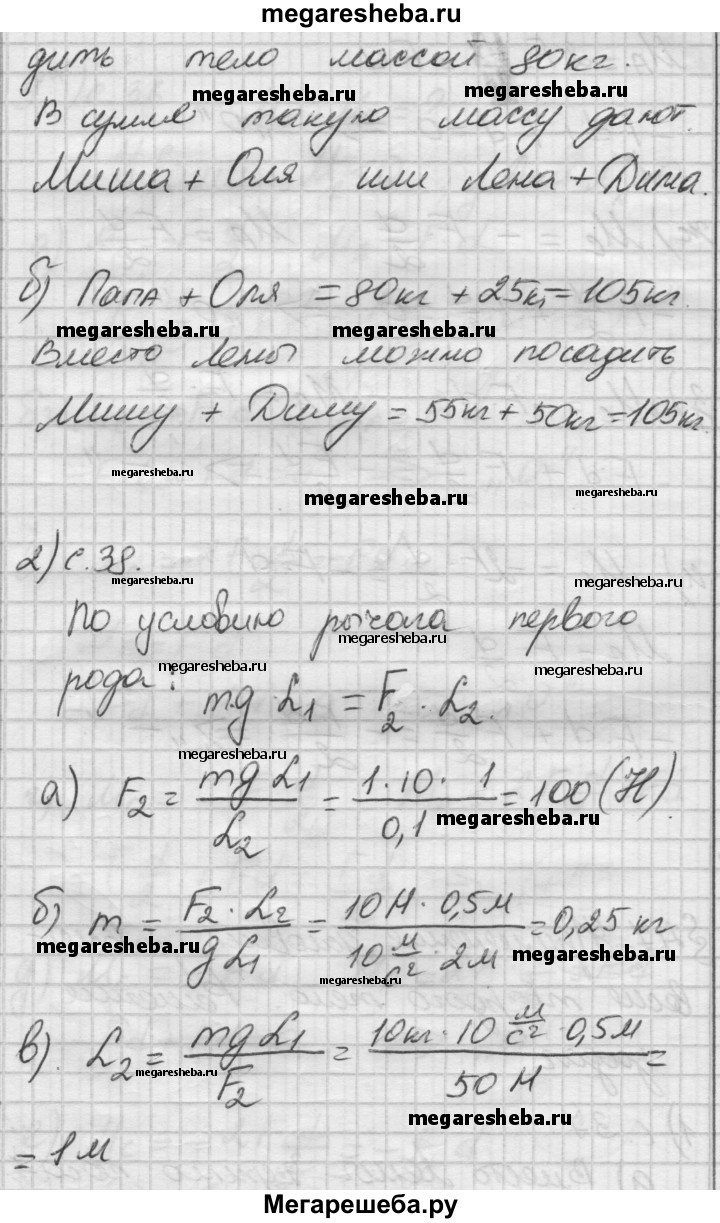 megaresheba.ru
дить тело массой 80кг.
megaresheba.ru megaresheba.ru
В сумме такую массу дают
Миша + Оля или Лена + Дима.
б) Папа + Оля = 80кг + 25кг = 105кг.
megaresheba.ru megaresheba.ru
Вместо Лены можно посадить
Мишу + Диму = 55кг + 50кг = 105кг.
megaresheba.ru megaresheba.ru
megaresheba.ru
2) с. 38.
megaresheba.ru megaresheba.ru
По условию рычага первого
megaresheba.ru
рода: mg · L₁ = F₂ · L₂.
megaresheba.ru megaresheba.ru
megaresheba.ru
а) F₂ = mg L₁ / L₂ = 1 · 10 · 1 / 0,1 = 100 (Н)
megaresheba.ru
б) m = F₂ · L₂ / g L₁ = 10 Н · 0,5 м / 10 м/с² · 2 м = 0,25 кг
megaresheba.ru megaresheba.ru
megaresheba.ru
в). L₂ = mg L₁ / F₂ = 10кг · 10 м/с² 0,5 м / 50 Н =
megaresheba.ru
megaresheba.ru
= 1 м
Мегарешеба.ру